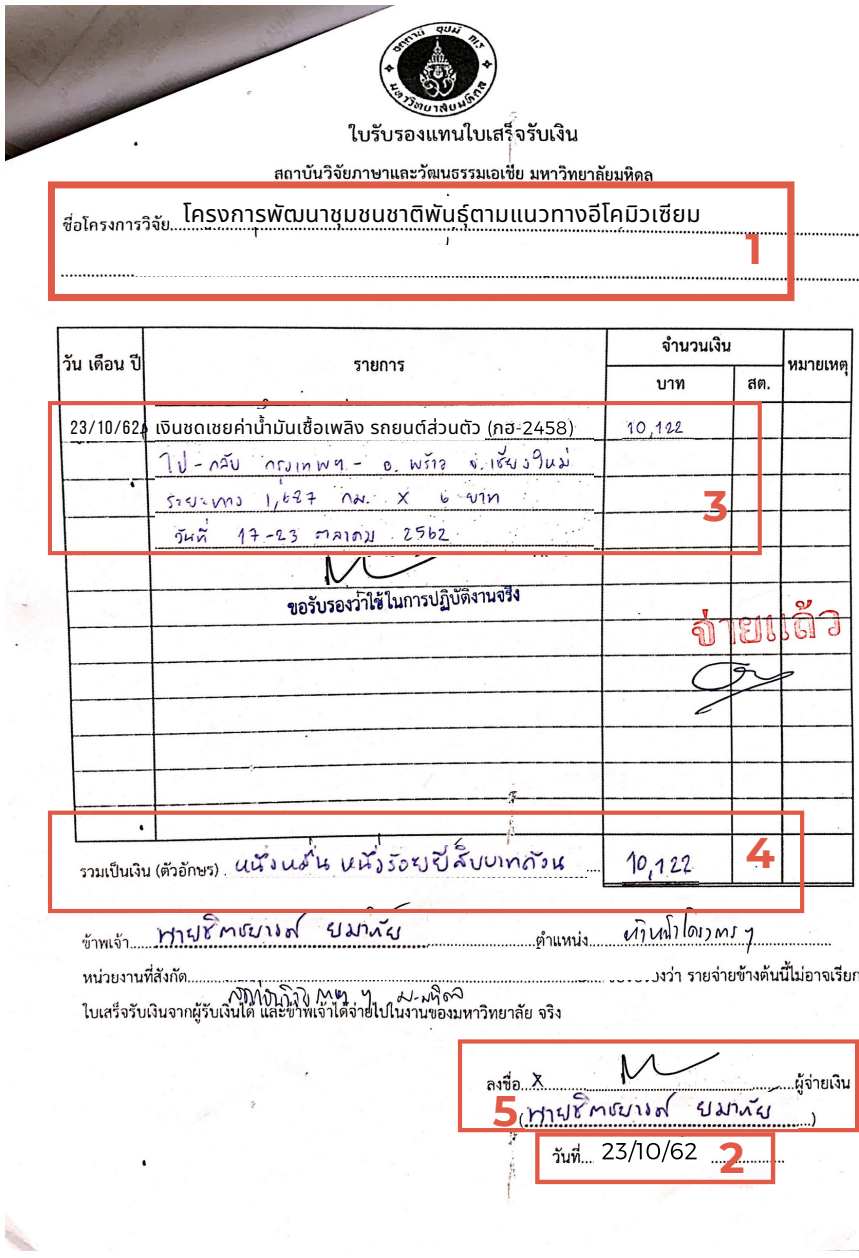 มหาวิทยาลัยมหิดล
ใบรับรองแทนใบเสร็จรับเงิน
สถาบันวิจัยภาษาและวัฒนธรรมเอเชีย มหาวิทยาลัยมหิดล
ชื่อโครงการวิจัย โครงการพัฒนาชุมชนชาติพันธุ์ตามแนวทางอีโคมิวเซียม
1
วัน เดือน ปี รายการ จำนวนเงิน หมายเหตุ
บาท สต.
23/10/62 เงินชดเชยค่าน้ำมันเชื้อเพลิง รถยนต์ส่วนตัว (ภฮ-2458) 10,122
ไป - กลับ กรุงเทพฯ - อ. พร้าว จ. เชียงใหม่
ระยะทาง 1,687 กม. X 6 บาท
3
วันที่ 17-23 ตุลาคม 2562
ขอรับรองว่าใช้ในการปฏิบัติงานจริง
จ่ายแล้ว
รวมเป็นเงิน (ตัวอักษร) หนึ่งหมื่น หนึ่งร้อยยี่สิบบาทถ้วน 10,122
4
ข้าพเจ้า ตำแหน่ง หัวหน้าโครงการฯ
หน่วยงานที่สังกัด งว่า รายจ่ายข้างต้นนี้ไม่อาจเรียก
ใบเสร็จรับเงินจากผู้รับเงินได้ และข้าพเจ้าได้จ่ายไปในงานของมหาวิทยาลัย จริง
ลงชื่อ X ผู้จ่ายเงิน
5
วันที่ 23/10/62
2